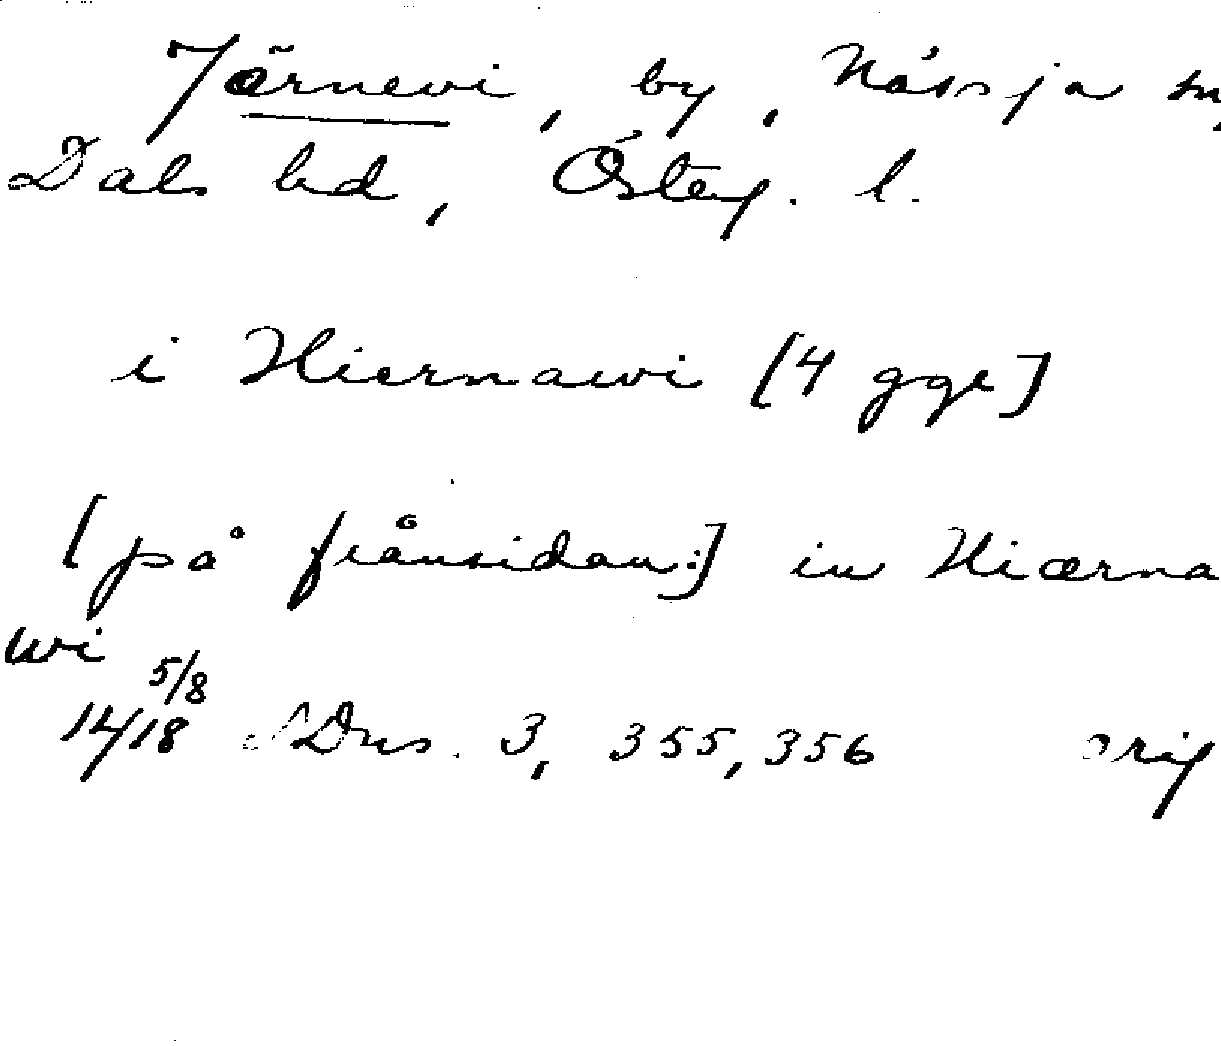 Järnevi, by, Nässja sn,
Dals hd, Österg. l.
i Hiernawi [4 ggr]
[på frånsidan:] in Hiærna
wi
5/8
1418 SDns. 3, 355, 356 orig